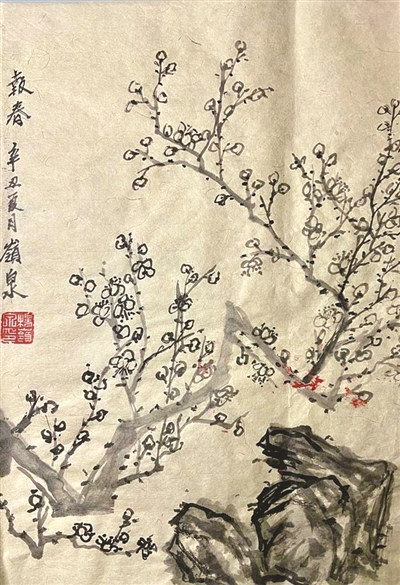 報春 辛丑夏月嶺泉